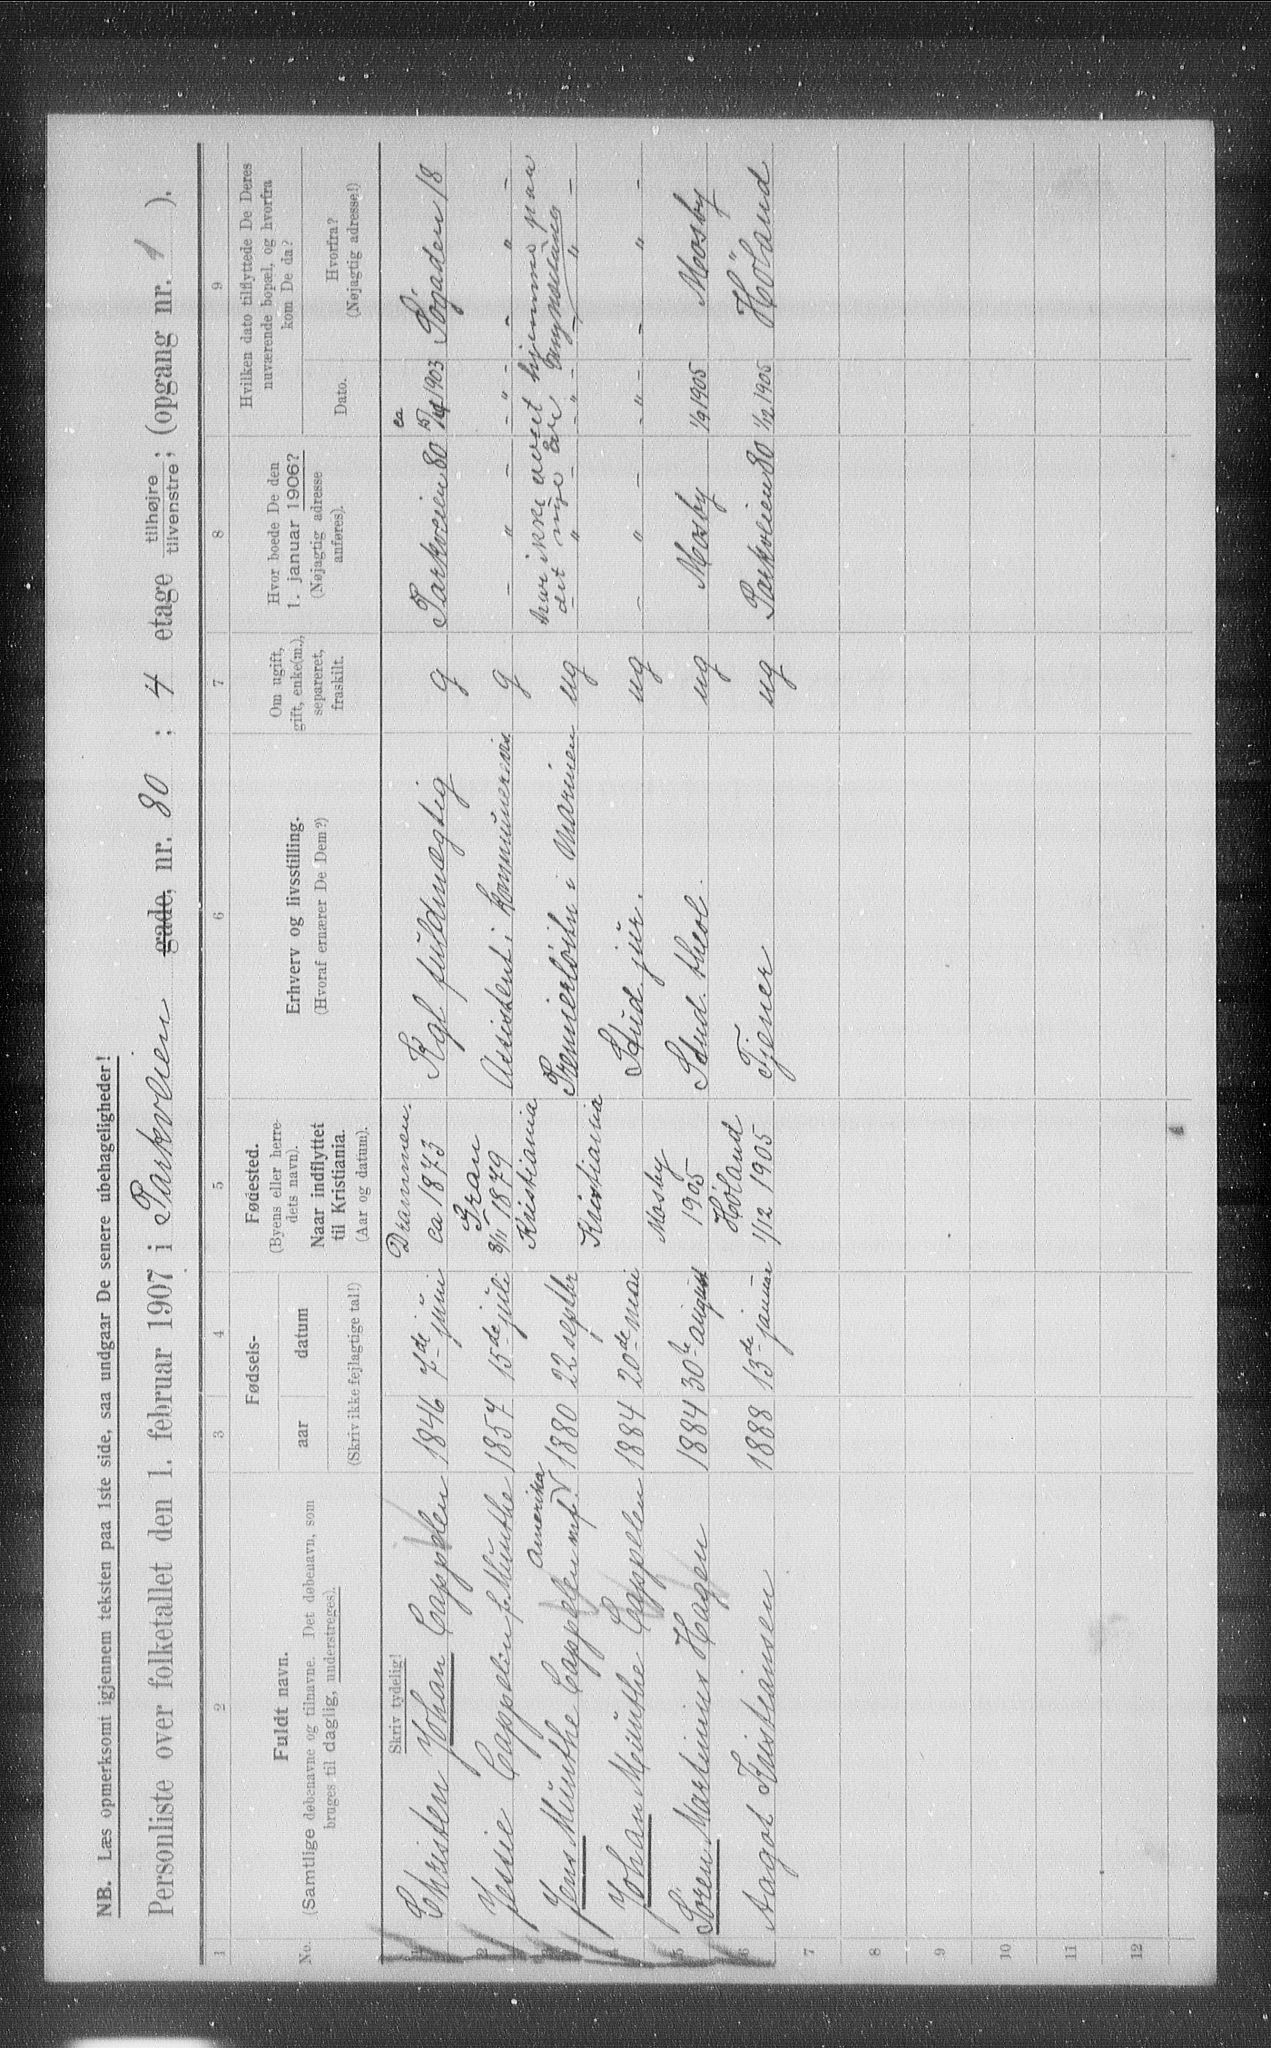 NB. Læs opmerksomt igjennem teksten paa 1ste side, saa undgaar De senere ubehageligheder!
Personliste over folketallet den 1. februar 1907 i Parkveien gade, nr. 80 ; 4 etage tilhøjre/tilvenstre; (opgang nr. 1 ).
1 2 3 4 5 6 7 8 9
No.
Fuldt navn.
(Samtlige døbenavne og tilnavne. Det døbenavn, som
bruges til daglig, understreges).
Fødsels-
aar datum
(Skriv ikke fejlagtige tal!)
Fødested.
(Byens eller herre-
dets navn).
Naar indflyttet
til Kristiania.
(Aar og datum).
Erhverv og livsstilling.
(Hvoraf ernærer De Dem?)
Om ugift,
gift, enke(m.),
separeret,
fraskilt.
Hvor boede De den
1. januar 1906?
(Nøjagtig adresse
anføres).
Hvilken dato tilflyttede De Deres
nuværende bopæl, og hvorfra
kom De da?
Dato.
Hvorfra?
(Nøjagtig adresse!)
Skriv tydelig!
1 Christen Johan Cappelen 1846 7de juni Drammen. ca 1873 Kgl fuldmægtig g Parkveien 80 ca 1903 18
2 Jessie Cappelen f. Münthe 1857 15de juli Gran 3/11 1879 Assistent i g - " - - " - - " -
har ikke været hjemme paa
det nye
3 Jens Münthe Cappelen Amerika 1880 22 septbr Kristiania Premierløitn i Marinen ug " - " - - " -
4 Johan Münthe Cappelen 1884 20de mai Kristiania Stud. jur. ug - " - - " - - " -
5 Sören Martinius Hagen 1884 30te august Mosby 1905 Stud. theol. ug Mosby 1/9 1905 Mosby
6 Aagot Kristiansen 1888 13de januar Höland 1/12 1905 Tjener ug Parkveien 80 1/12 1905 Höland
7
8
9
10
11
12